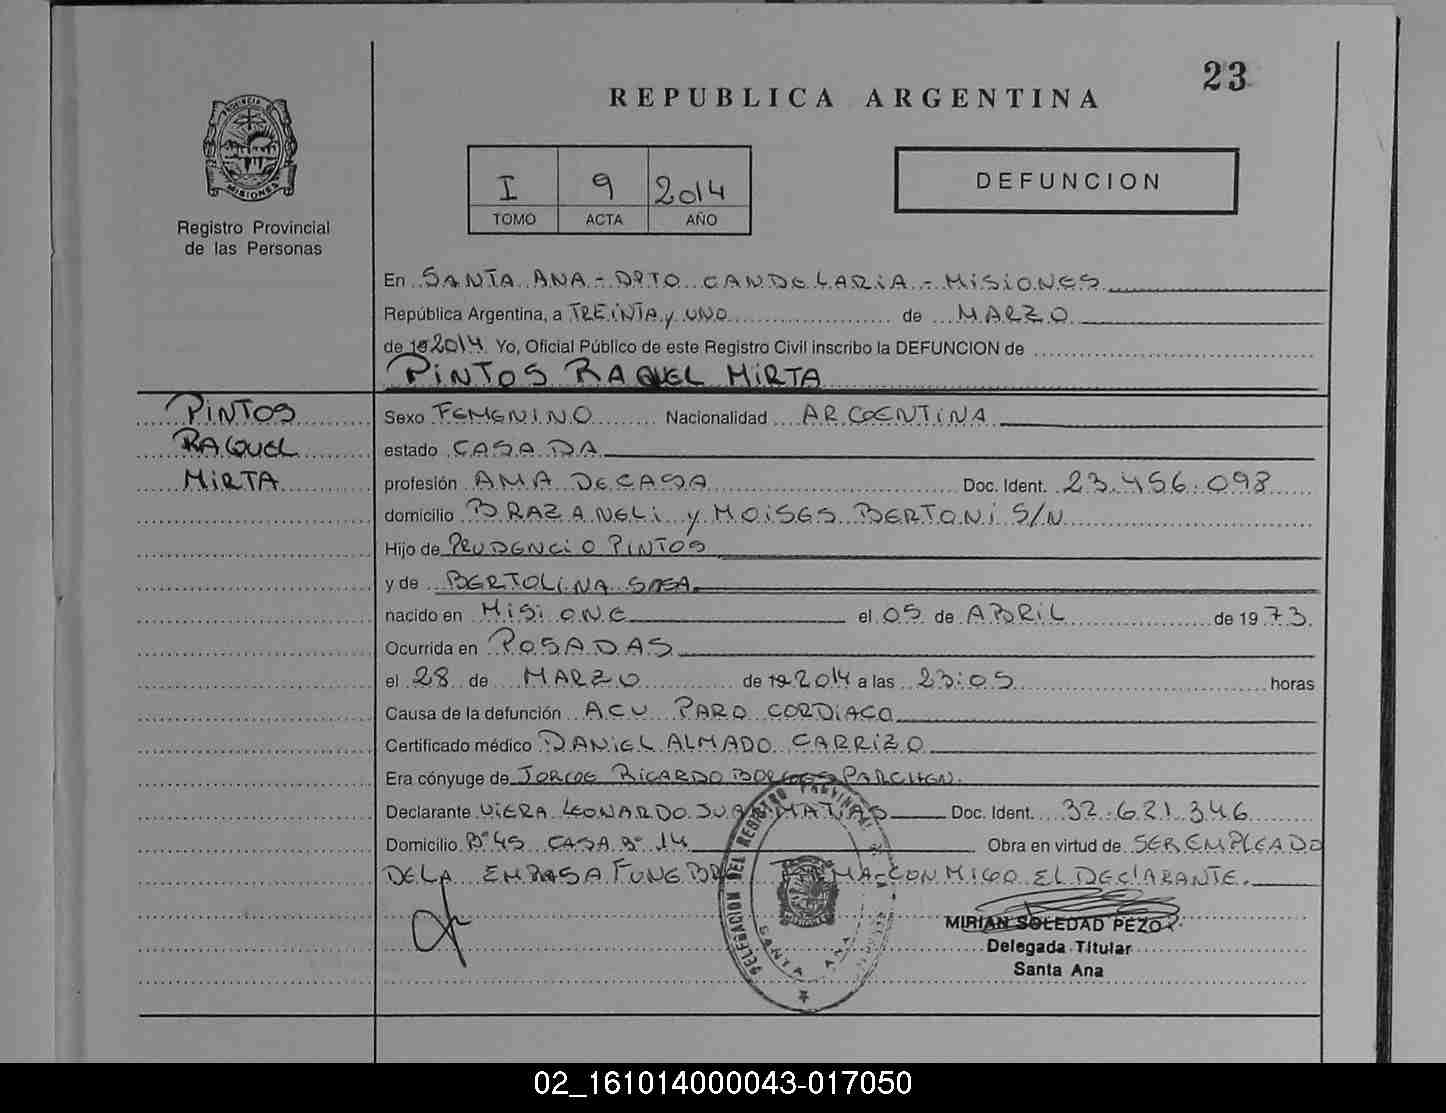 23
REPUBLICA ARGENTINA
I 9 2014
TOMO ACTA AÑO
DEFUNCION
MISIONES
Registro Provincial
de las Personas
En SANTA ANA - DPTO CANDELARIA - MISIONES
República Argentina, a TREINTA y UNO de MARZO
de 19 2014 Yo, Oficial Público de este Registro Civil inscribo la DEFUNCION de
PINTOS RAQUEL MIRTA
PINTOS
RAQUEL
MIRTA
Sexo FEMENINO Nacionalidad ARGENTINA
estado CASADA
profesión AMA DE CASA Doc. Ident. 23.456.098
domicilio BRAZANELI y MOISES BERTONI S/N
Hijo de PRUDENCIO PINTOS
y de BERTOLINA SOSA
nacido en MISIONE el 05 de ABRIL de 1973
Ocurrida en POSADAS
el 28 de MARZO de 19 2014 a las 23:05 horas
Causa de la defunción ACV PARO CORDIACO
Certificado médico DANIEL ALMADO CARRIZO
Era cónyuge de JORGE RICARDO BORGES PARCHEN.
Declarante VIERA LEONARDO JUAN MATIAS Doc. Ident. 32.621.346
Domicilio B° 45 CASA N° 14 Obra en virtud de SER EMPLEADO
DE LA EMPRASA FUNEBRE FIRMA CON MIGO EL DECLARANTE.
DELEGACION DEL REGISTRO PROVINCIAL
SANTA ANA
MIRIAN SOLEDAD PEZOA
Delegada Titular
Santa Ana
02_161014000043-017050